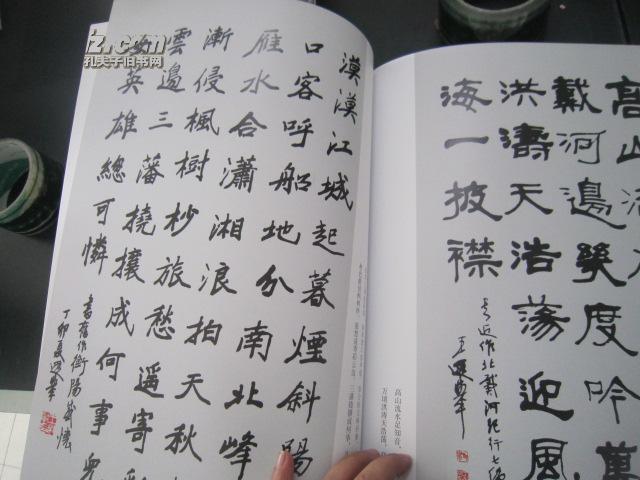 漠漠江城起暮煙斜陽
口客呼船地分南北峰
雁水合瀟湘浪拍天秋
漸侵楓樹杪旅愁遥寄彩
雲邊三藩撓攘成何事兒
女英雄總可憐
書舊作衡陽感懷
丁卯夏遐舉
高山
戴河邊幾度吟萬
洪濤天浩蕩迎風
海一披襟
書近作北戴河紀行七絕
王遐舉
高山流水足知音
万顷洪涛天浩荡
孔夫子旧书网